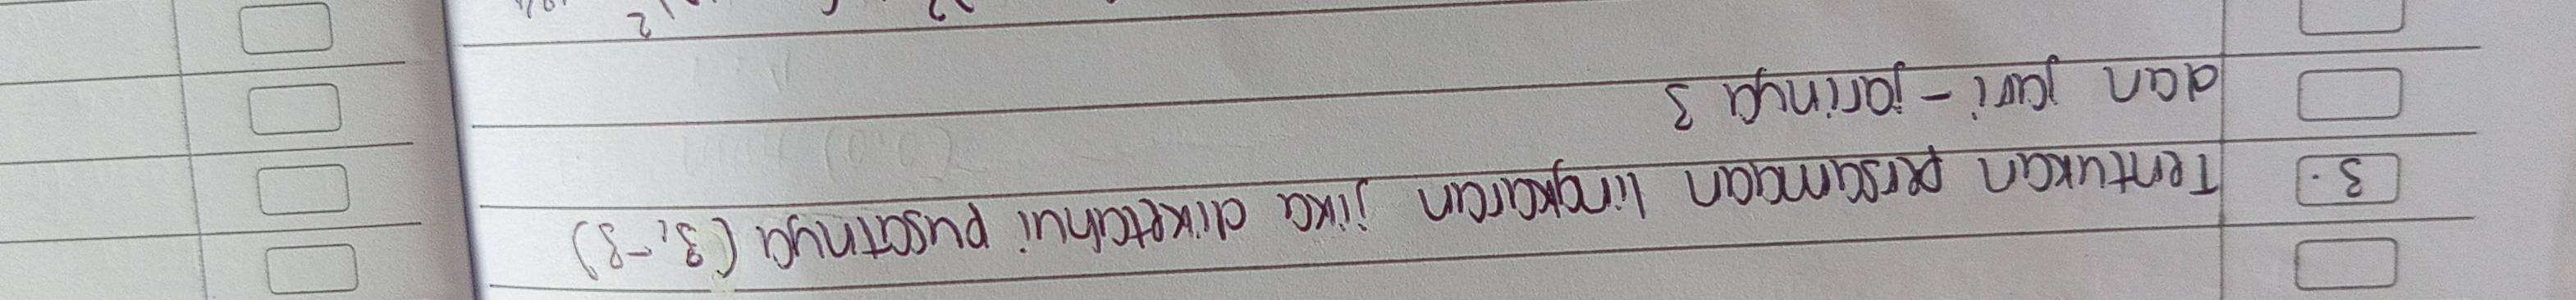 3. Tentukan persamaan lingkaran jika diketahui pusatnya (3, -8)
dan jari-jarinya 3